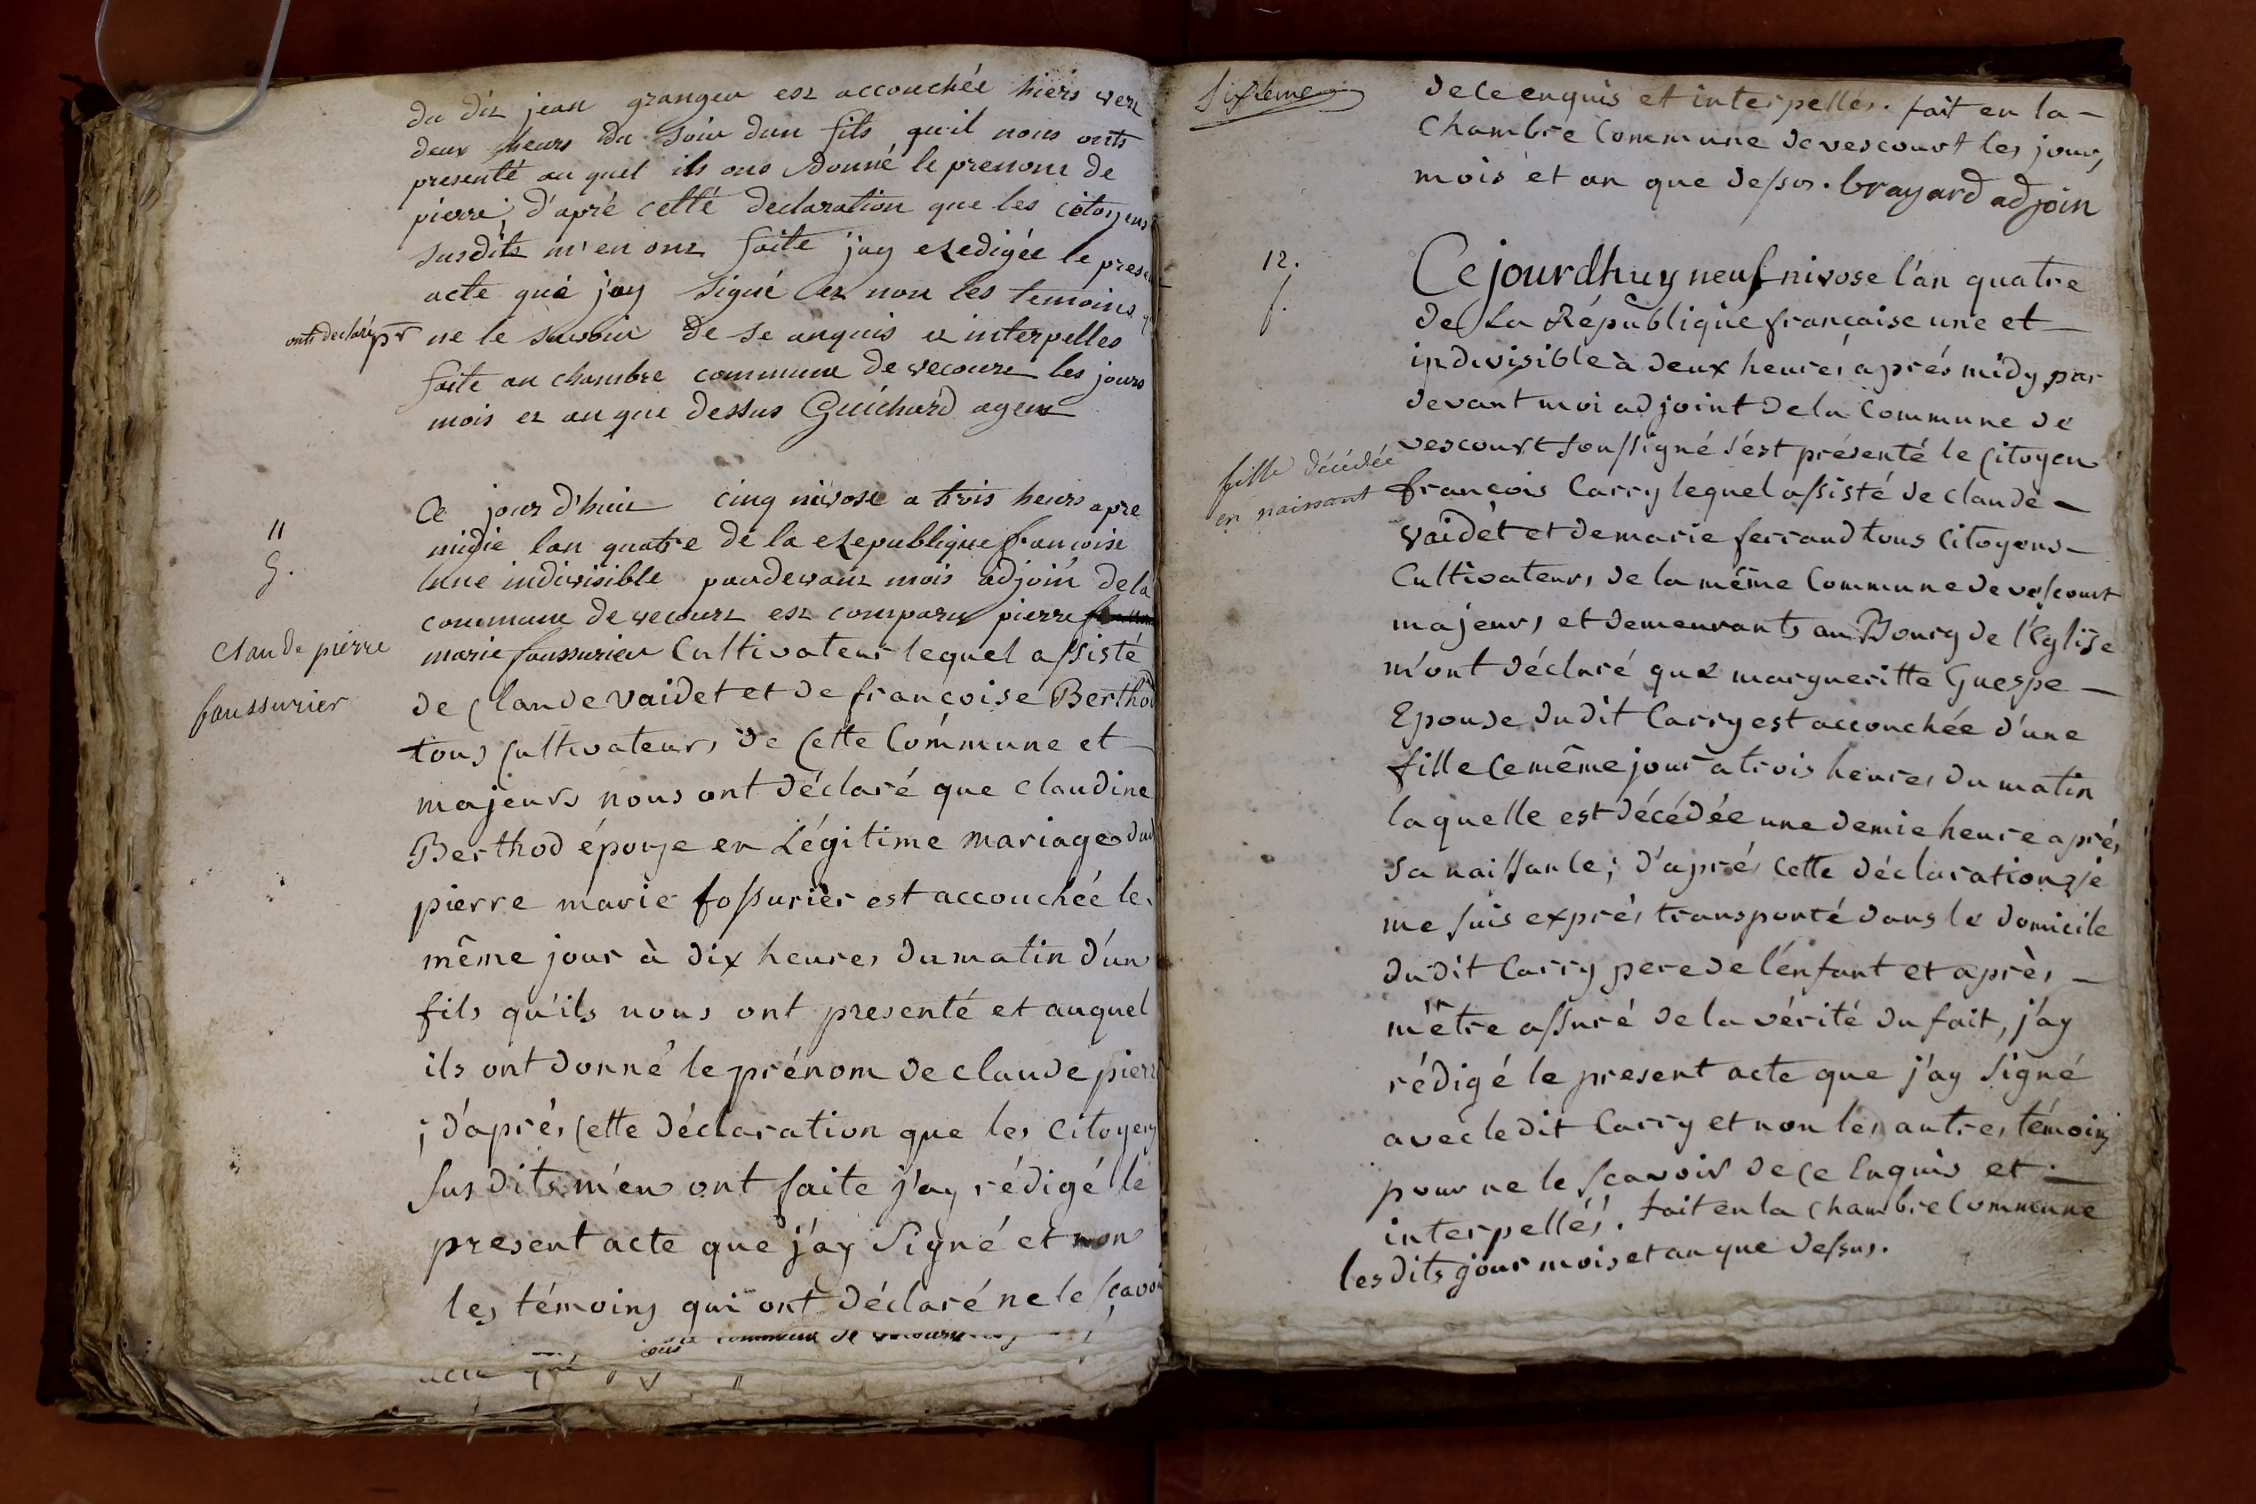 du dit jean granger est accouchée hiers vers
deux heurs du soir dun fils qu'il nous onts
presenté au quel ils ons donné le prenom de
pierre; d'apré cetté declaration que les citoyens
susdits m'en ont faite jay redigée le prese
acte qué jay signé et non les temoins q
onts declaré pr ne le savoir de se anquis et interpelles
faite au chambre commune de vecourt les jours
mois et an que dessus Guichard agent
11
g.
claude pierre
faussurier
Ce jour d'huit cinq nivose a trois heurs apre
midie lan quatre de la republique francoise
une indivisible pardevant mois adjoin de la
commune de vecourt est comparu pierre
marie faussurier Cultivateur lequel assisté
de Claude vaidet et de francoise Berthod
tous cultivateurs de Cette Commune et
majeurs nous ont déclaré que claudine
Berthod épouse en Légitime mariage dud
pierre marie fossurier est accouchée le
même jour à dix heures du matin d'un
fils qu'ils nous ont presenté et auquel
ils ont donné le prénom de claude pierr
; d'aprés Cette déclaration que les citoyens
susdits m'en ont faite j'ay rédigé le
present acte que j'ay signé et non
les témoins qui ont déclaré ne le scavoi
commune de vecourt
acte qué
Sixieme
de ce enquis et interpellés. fait en la -
chambre Commune de vescourt les jour,
mois et an que dessus. brayard adjoin
12.
f.
fille décédée
en naissant
Ce jourdhuy neuf nivose l'an quatre
de La République française une et
indivisible à deux heures aprés midy par
devant moi adjoint de la Commune de
vescourt soussigné s'est présenté le Citoyen
françois Carry lequel assisté de claude -
vaidet et de marie ferrand tous citoyens -
Cultivateurs de la même Commune de vescourt
majeurs et demeurants au Bourg de l'Eglise
m'ont déclaré que margueritte Guespe -
Epouse du dit Carry est accouchée d'une
fille Ce même jour a trois heures du matin
laquelle est décédée une demie heure aprés
sa naissance; d'aprés cette déclaration je
me suis exprés transporté dans le domicile
du dit Carry pere de l'enfant et après -
m'être assuré de la vérité du fait, j'ay
rédigé le present acte que j'ay signé
avec le dit Carry et non les autres témoins
pour ne le scavoir de ce Enquis et -
interpellés. fait en la chambre Commune
les dits jour mois et an que dessus.